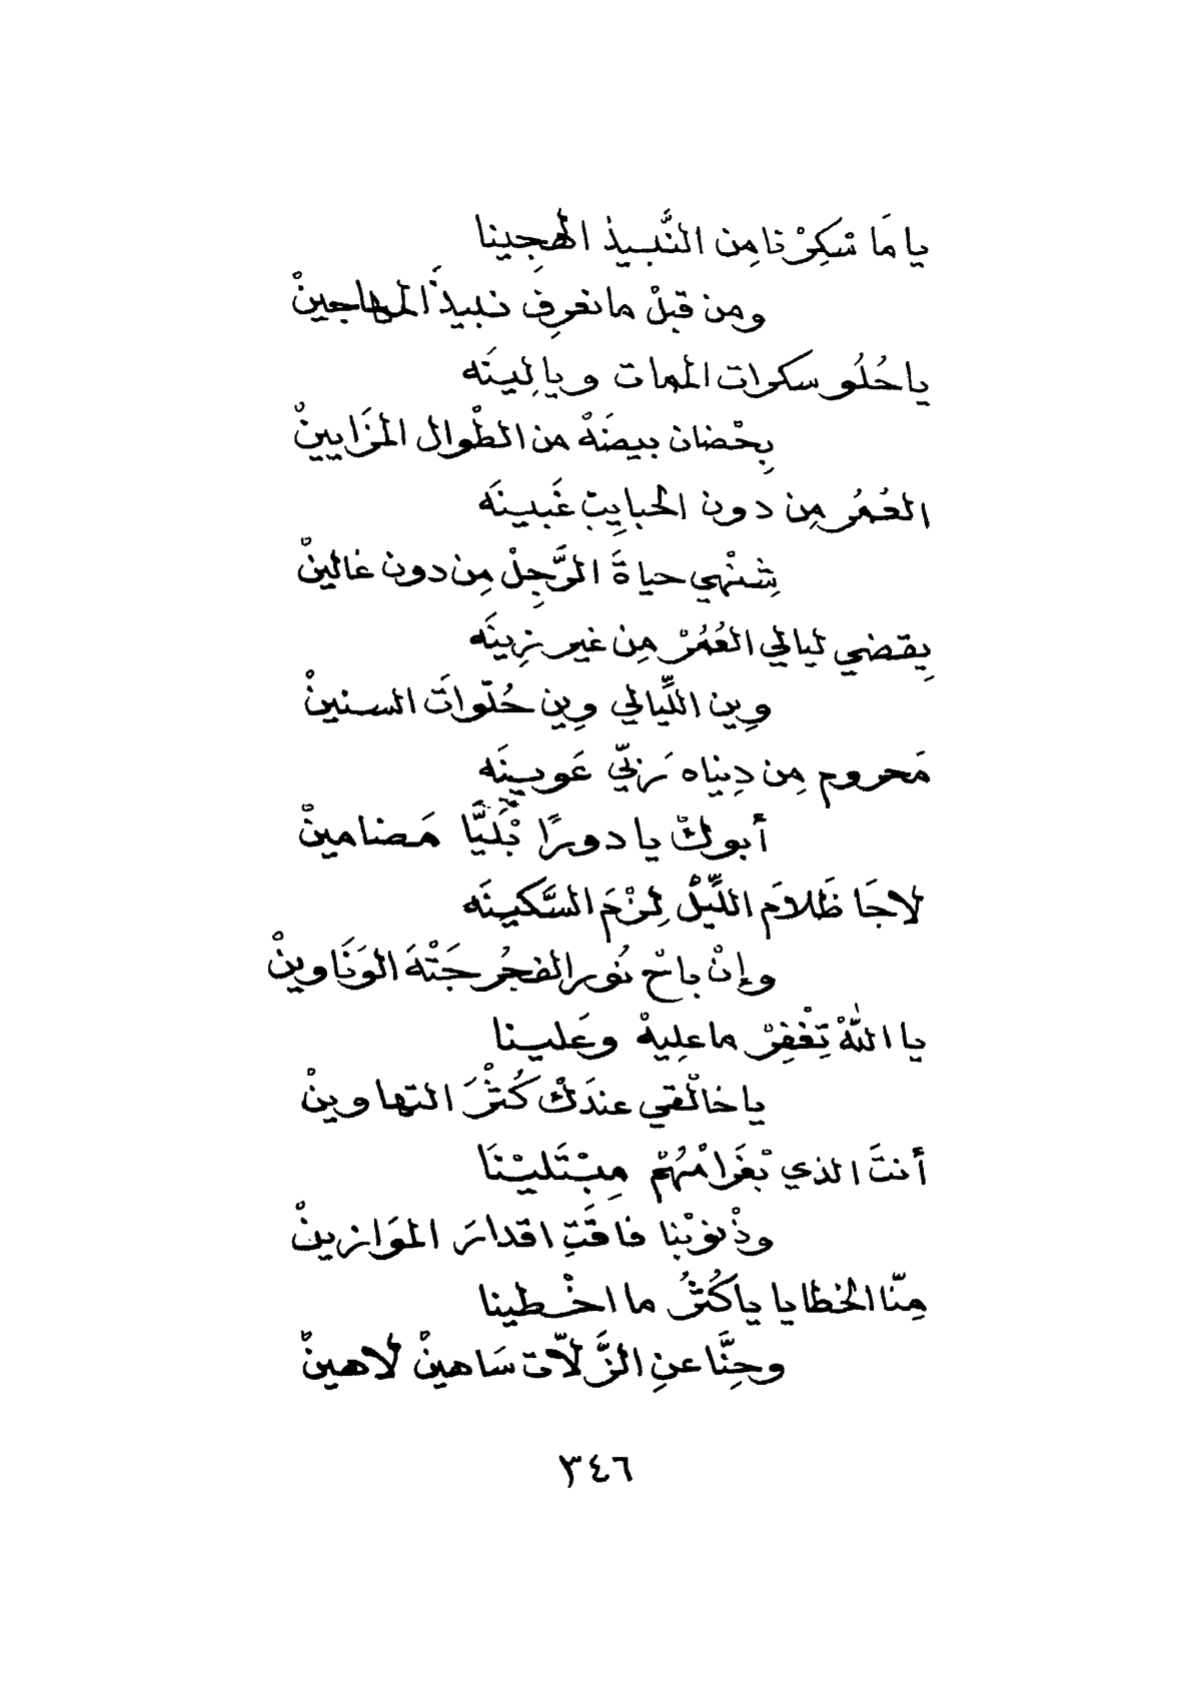 يا مَا سْكِرْنا مِن النَّبيذِ الهجِينا
ومن قبلْ ما نعرِف نبيذَ المهاجينْ
يا حُلُو سكرات الممات ويا لِينَه
بِحْضان بيضَهْ من الطْوال المَزَايينْ
العُمُر مِن دون الحبايِبْ غَبينَه
شِنْهي حياةَ الرَّجِلْ مِن دون غالينْ
يِقضي ليالي العُمُرْ مِن غير زِينَه
وِين اللِّيالي وِين حُلّواتَ السنينْ
مَحروم مِن دِنياه تزبّي عَوِينَه
أبوكْ يا دورًا بْلَيَّا مَضامينْ
لاجَا ظَلامَ اللِّيلْ لِزْمَ السَّكينَه
وإنْ باحْ نُور الفجُر جَتْهَ الوَنَاوينْ
يا اللهْ تِغْفِرْ ما علِيهْ وعَلينا
يا خالْقي عندَكْ كُثْرَ التهاوينْ
أنتَ الذي بْغَرامْهُمْ مِبْتَليْنَا
وذْنوبْنا فاقَتِ اقدارَ الموَازينْ
مِنّا الخطايا ياكُثُر ما اخْطينا
وحِنَّا عنِ الزَّلّات سَاهينْ لاهينْ
٣٤٦